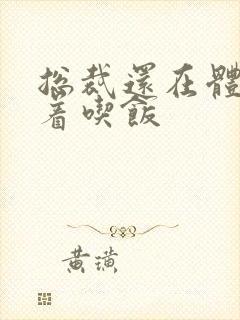 總裁還在體
着喫飯
黃璜